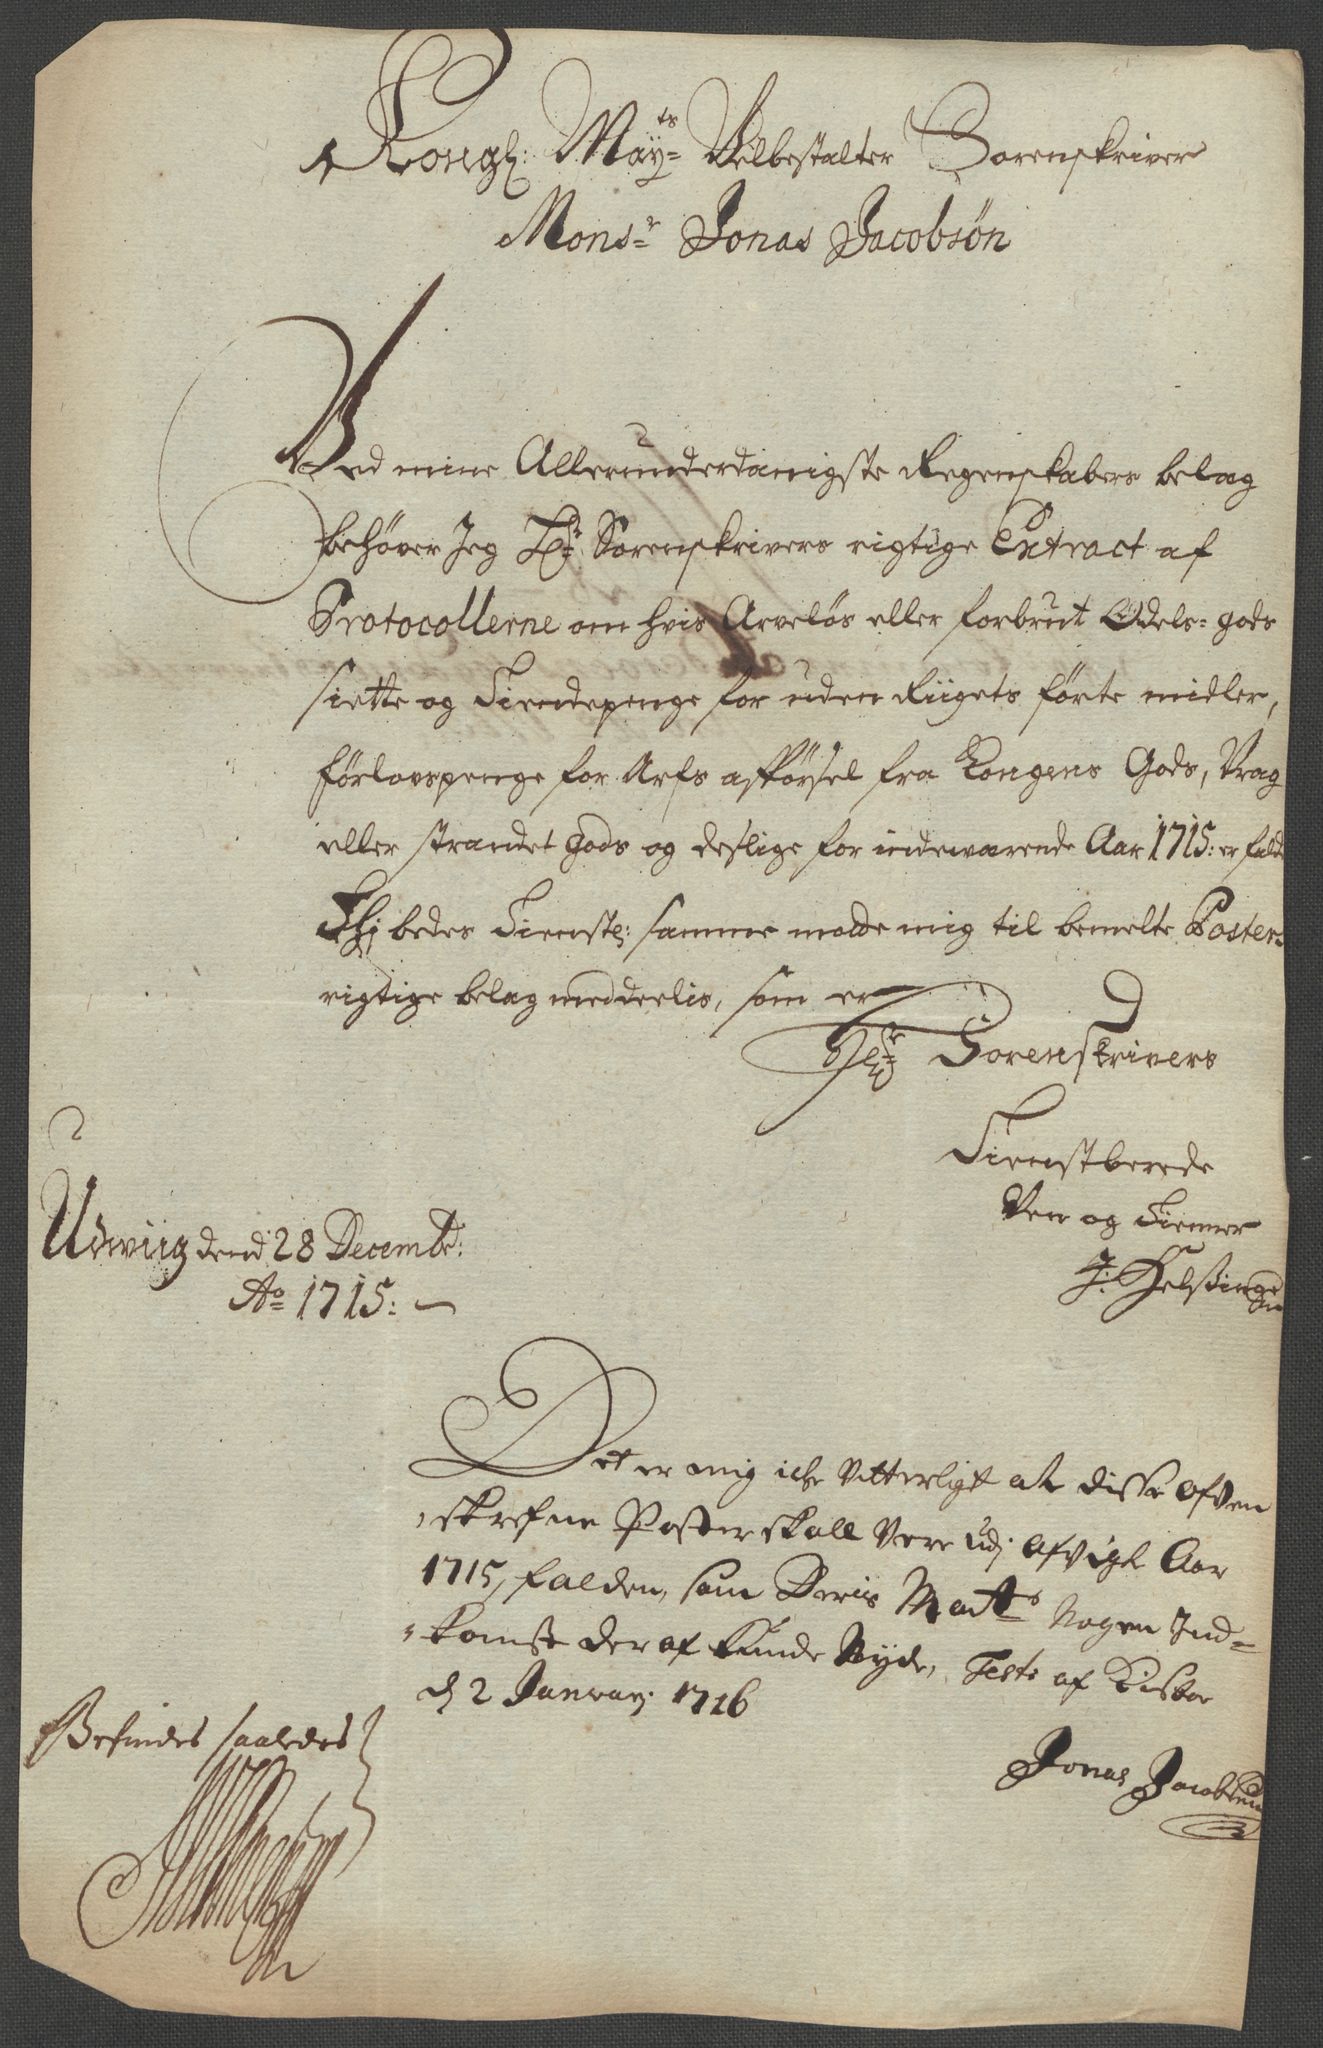 Kongl: May:ts Velbestalter Sorenskriver
Mons:r Jonas Jacobsøn
Ved mine Allerunderdanigste Regenskabers belag
behøver Jeg Hr: Sorenskrivers rigtige Extract af
Protocollerne om hvis Arveløs eller forbrut Odels- gods
siette og Tiendepenge for uden Riigets førte midler,
førlovspenge for Arfs afkørsel fra Kongens Gods, Vrag
eller strandet gods og deslige for indeværende Aar 1715: er falden
Thj bedes Tienstl: samme motte mig til bemelte Posters
rigtige belag meddeelis, som er
Sorenskrivers
Tienstberede
Ven og Tienner
J: Helsing
Udwiig dend 28 Decembr:
Ao 1715:
Det er mig icke Vitterligt at disse ofven
skrefne Poster skall Vere udj afvigte Aar
1715, falden, som Deris Mayt:s Nogen Ind-
komste der af kunde Nyde, Test: af
d 2 January 1716
Jonas Jacobsen
Befindes saaledes